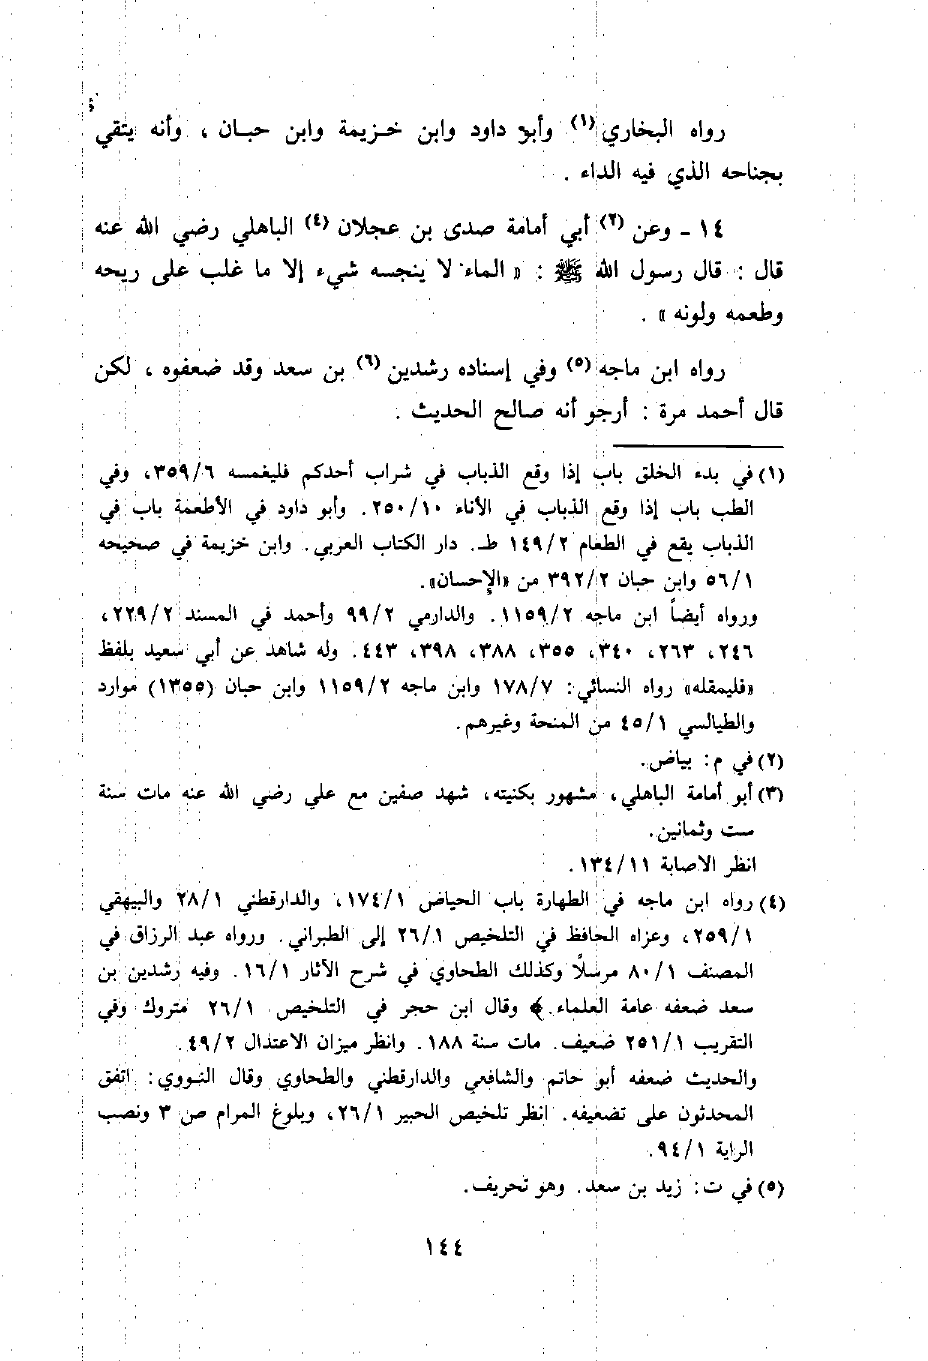 رواه البخاري(١) وأبو داود وابن خزيمة وابن حبان ، وأنه يتقي
بجناحه الذي فيه الداء .
١٤ ـ وعن (٢) أبي أمامة صدى بن عجلان (٤) الباهلي رضي الله عنه
قال : قال رسول الله ﷺ : « الماء لا ينجسه شيء إلا ما غلب على ريحه
وطعمه ولونه » .
رواه ابن ماجه(٥) وفي إسناده رشدين(٦) بن سعد وقد ضعفوه ، لكن
قال أحمد مرة : أرجو أنه صالح الحديث .
(١) في بدء الخلق باب إذا وقع الذباب في شراب أحدكم فليغمسه ٣٥٩/٦، وفي
الطب باب إذا وقع الذباب في الأناء ٢٥٠/١٠. وأبو داود في الأطعمة باب في
الذباب يقع في الطعام ١٤٩/٢ طـ. دار الكتاب العربي. وابن خزيمة في صحيحه
٥٦/١ وابن حبان ٣٩٢/٢ من «الإحسان».
ورواه أيضاً ابن ماجه ١١٥٩/٢. والدارمي ٩٩/٢ وأحمد في المسند ٢٢٩/٢،
٢٤٦، ٢٦٣، ٣٤٠، ٣٥٥، ٣٨٨، ٣٩٨، ٤٤٣. وله شاهد عن أبي سعيد بلفظ
«فليمقله» رواه النسائي: ١٧٨/٧ وابن ماجه ١١٥٩/٢ وابن حبان (١٣٥٥) موارد
والطيالسي ٤٥/١ من المنحة وغيرهم.
(٢) في م: بياض.
(٣) أبو أمامة الباهلي، مشهور بكنيته، شهد صفين مع علي رضي الله عنه مات سنة
ست وثمانين.
انظر الاصابة ١٣٤/١١.
(٤) رواه ابن ماجه في الطهارة باب الحياض ١٧٤/١، والدارقطني ٢٨/١ والبيهقي
٢٥٩/١، وعزاه الحافظ في التلخيص ٢٦/١ إلى الطبراني. ورواه عبد الرزاق في
المصنف ٨٠/١ مرسلاً وكذلك الطحاوي في شرح الآثار ١٦/١. وفيه رشدين بن
سعد ضعفه عامة العلماء.﴾ وقال ابن حجر في التلخيص ٢٦/١ متروك وفي
التقريب ٢٥١/١ ضعيف. مات سنة ١٨٨. وانظر ميزان الاعتدال ٤٩/٢.
والحديث ضعفه أبو حاتم والشافعي والدارقطني والطحاوي وقال النووي: اتفق
المحدثون على تضعيفه. انظر تلخيص الحبير ٢٦/١، وبلوغ المرام ص ٣ ونصب
الراية ٩٤/١.
(٥) في ت: زيد بن سعد. وهو تحريف.
١٤٤